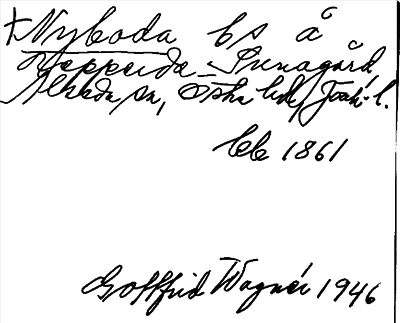 † Nyboda bs å
Repperda Sunagård,
Alseda sn, Östra hd, Jönk. l.
beb 1861
Gottfrid Wagnér 1946